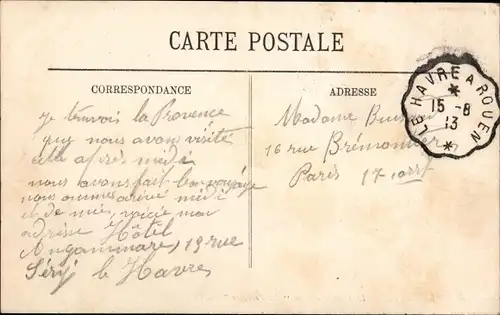 CARTE POSTALE
CORRESPONDANCE
je t'envois la Provence
que nous avons visité
cette après midi
nous avons fait bon voyage
nous sommes arrivé midi
et demie, voici mon
adresse Hôtel
Angammare, 19 rue
Séry le Havre
ADRESSE
Madame
16 rue Brémontier
Paris 17 arrt
LE HAVRE A ROUEN
15 -8
13